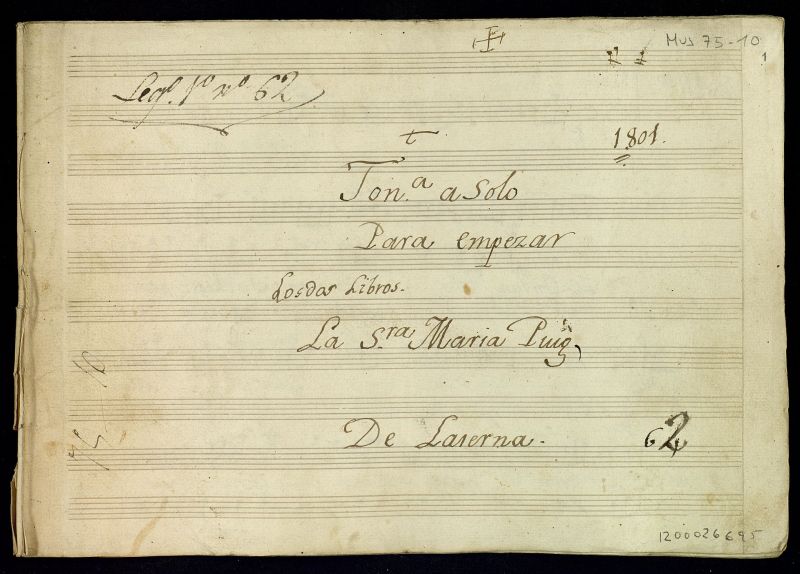 Mus 75-10
1
Leg.º 1º nº 62
t
1801.
Ton.ª a solo
Para empezar
Los dos Libros.
La S.ra Maria Puig
De Laserna.
62
75-10
1200026695